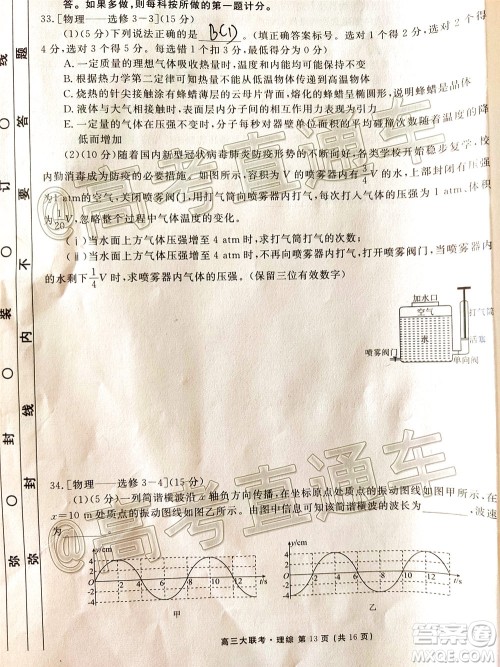 答。如果多做，则每科按所做的第一题计分。
33.[物理——选修3－3](15分)
(1)(5分)下列说法正确的是 BCD 。(填正确答案标号。选对1个得2分，选对2个得
4分，选对3个得5分。每选错1个扣3分，最低得分为0分)
A.一定质量的理想气体吸收热量时，温度和内能可能保持不变
B.根据热力学第二定律可知热量不可能自发地从低温物体传递到高温物体
C.烧热的针尖接触涂有蜂蜡薄层的云母片背面，熔化的蜂蜡呈椭圆形，说明蜂蜡是晶体
D.液体与大气相接触时，表面层内分子间的相互作用力表现为引力
E.一定质量的气体压强不变时，分子每秒对器壁单位面积平均碰撞次数随着温度的降
低而增加
(2)(10分)随着国内新型冠状病毒肺炎疫情形势的不断好转，各类学校开学复课，校
内勤消毒成为防疫的必要措施。
1 atm
1/20 V，忽略整个过程中气体温度的变化。
(ⅰ)当水面上方气体压强增至4 atm时，求打气筒打气的次数；
(ⅱ)当水面上方气体压强增至4 atm时，停止打气，并打开喷雾阀门，当喷雾器内
的水剩下1/4 V时，求喷雾器内气体的压强。(保留三位有效数字)
加水口
空气
打气筒
水
活塞
喷雾阀门
单向阀
34.[物理——选修3－4](15分)
(1)(5分)一列简谐横波沿x轴负方向传播，在坐标原点处质点的振动图线如图甲所示，在
x＝10 m处质点的振动图线如图乙所示。由图中信息可知该简谐横波的波长为 ，波速
为
y/cm
4
0
-4
2 4 6 8 10 12
t/s
甲
y/cm
4
0
-4
2 4 6 8 10 12
t/s
乙
高三大联考·理综 第13页(共16页)
弥 封 装 订 线
弥 封 线 内 不 要 答 题
@高考直通车
@高考直通车
@高考直通车